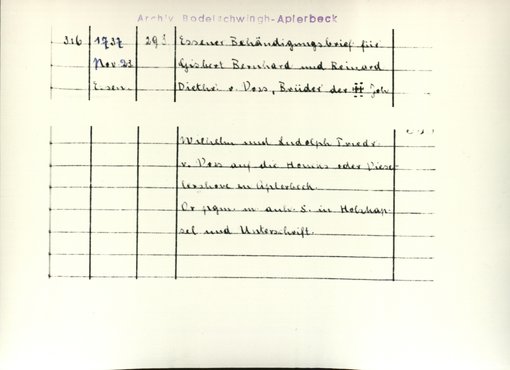 Archiv Bodelschwingh-Aplerbeck
316 1737 293 Essener Behändigungsbrief für
Nov 23 Gisbert Bernhard und Reinard
Essen Diethr. v. Voss, Brüder der Joh
Wilhelm und Ludolph Friedr.
v. Voss auf die Homans oder Piese
lershove in Aplerbeck
Or pgm. m anh. S. in Holzkap-
sel und Unterschrift.